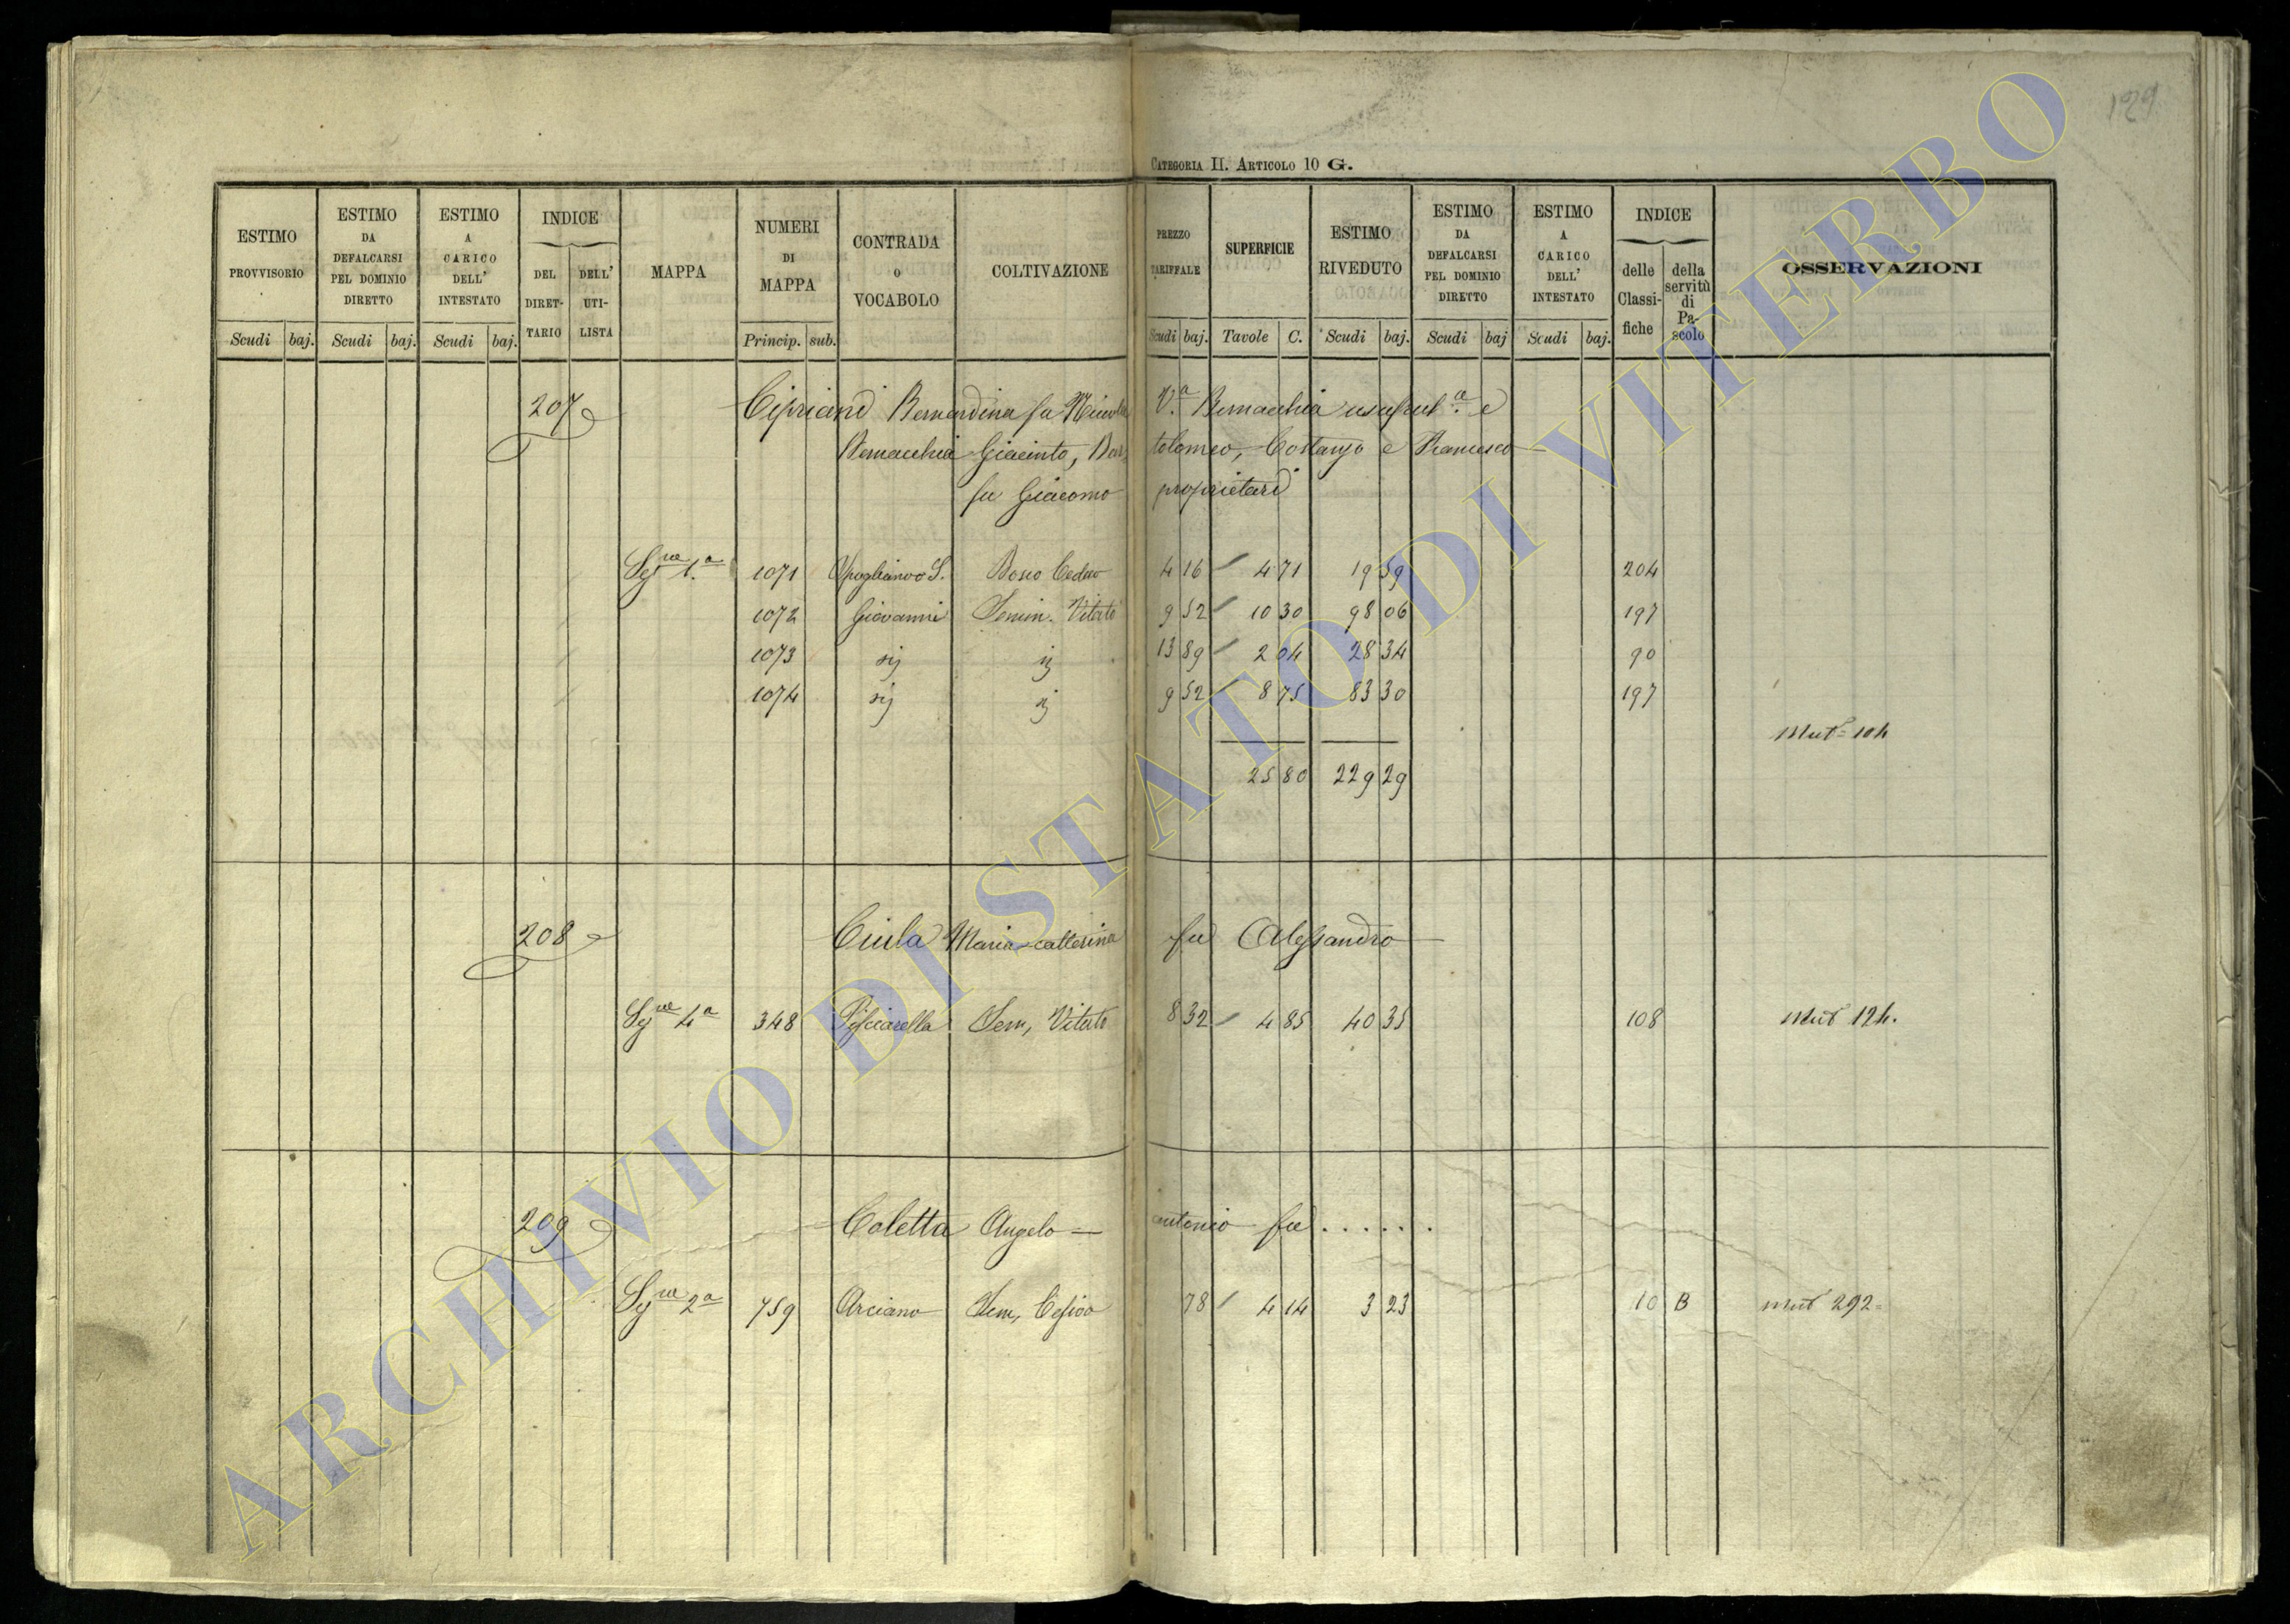 129
CATEGORIA II. ARTICOLO 10 G.
ESTIMO PROVVISORIO Scudi baj.
ESTIMO DA DEFALCARSI PEL DOMINIO DIRETTO Scudi baj.
ESTIMO A CARICO DELL' INTESTATO Scudi baj.
INDICE DEL DIRETTARIO DELL' UTILISTA
MAPPA
NUMERI DI MAPPA Princip. sub.
CONTRADA O VOCABOLO
COLTIVAZIONE
PREZZO TARIFFALE Scudi baj.
SUPERFICIE Tavole C.
ESTIMO RIVEDUTO Scudi baj.
ESTIMO DA DEFALCARSI PEL DOMINIO DIRETTO Scudi baj
ESTIMO A CARICO DELL' INTESTATO Scudi baj.
INDICE delle Classifiche della servitù di Pascolo
OSSERVAZIONI
207 Cipriani Bernardina fu Nicola Va. Bernacchia usufruta. e
Bernacchia Giacinto, Bartolomeo, Costanzo e Francesco
fu Giacomo proprietari
1.a 1071 S. Bosco Ceduo 4 16 4 71 19 59 204
1072 Giovanni Semin. Vitato 9 52 10 30 98 06 197
1073 sij ij 13 89 2 04 28 34 90
1074 sij ij 9 52 8 75 83 30 197
Mut= 104
25 80 229 29
208 Ciula Maria-catterina fu Alessandro
4a 348 Pisciarella Sem, Vitato 8 32 4 85 40 35 108 Mut 124.
209 Coletta Angelo-antonio fu ......
2a 759 Arciano Sem, 78 4 14 3 23 10 B mut 292=
ARCHIVIO DI STATO DI VITERBO